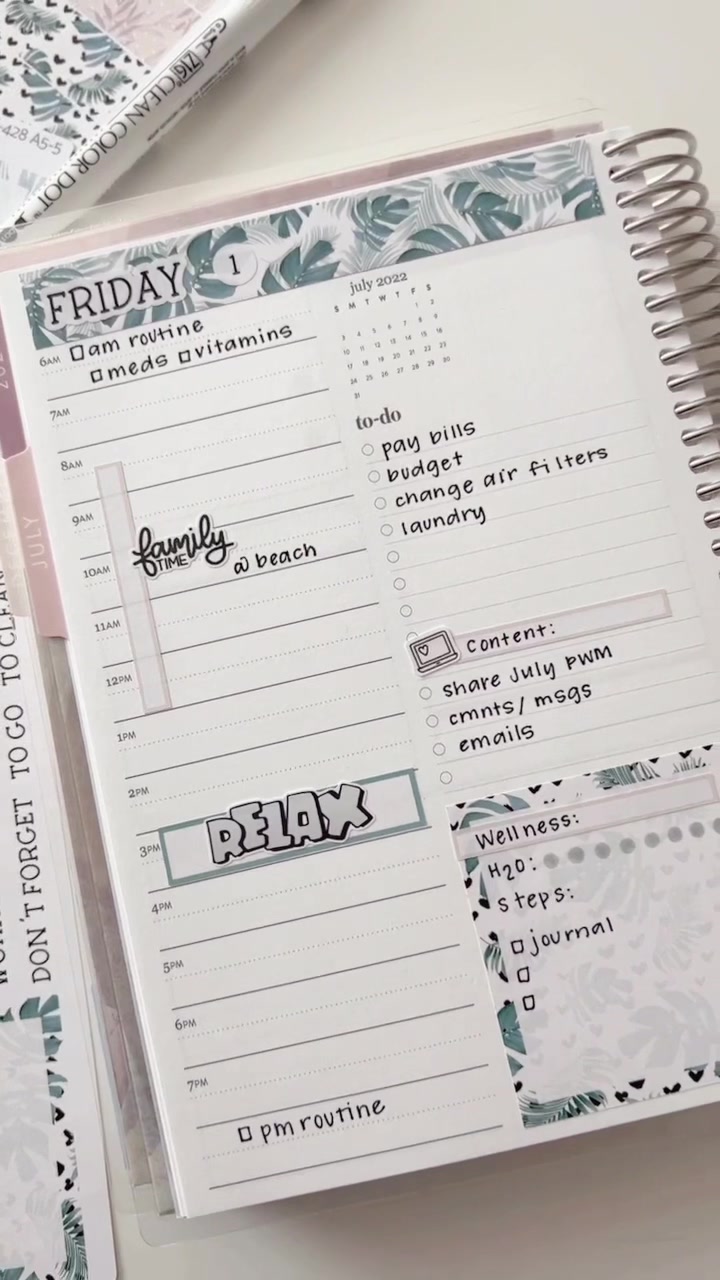 ZIG CLEAN COLOR DOT
-428 A5-5
FRIDAY 1
6AM □ am routine
□ meds □ vitamins
7AM
8AM
9AM
family
TIME
@ beach
10AM
11AM
12PM
1PM
2PM
RELAX
3PM
4PM
5PM
6PM
7PM
□ pm routine
july 2022
S M T W T F S
1 2
3 4 5 6 7 8 9
10 11 12 13 14 15 16
17 18 19 20 21 22 23
24 25 26 27 28 29 30
31
to-do
pay bills
budget
change air filters
laundry
Content:
share July PWM
cmnts/ msgs
emails
Wellness:
H2O:
steps:
□ journal
□
□
JULY
DON'T FORGET TO GO TO CLEAN